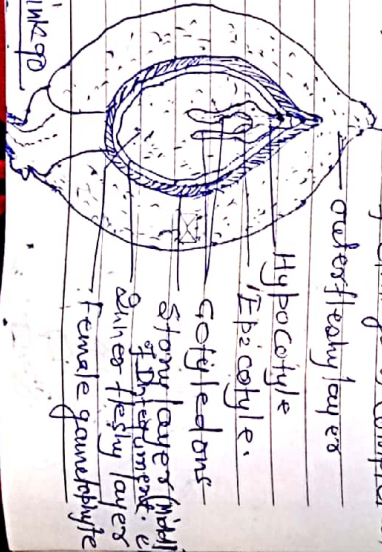 outerfleshylayer
Hypocotyle
Epicotyle.
Cotyledons
Stony layer (Middl
of Integument. e
Inner fleshy layer
Female gametophyte
inkgo